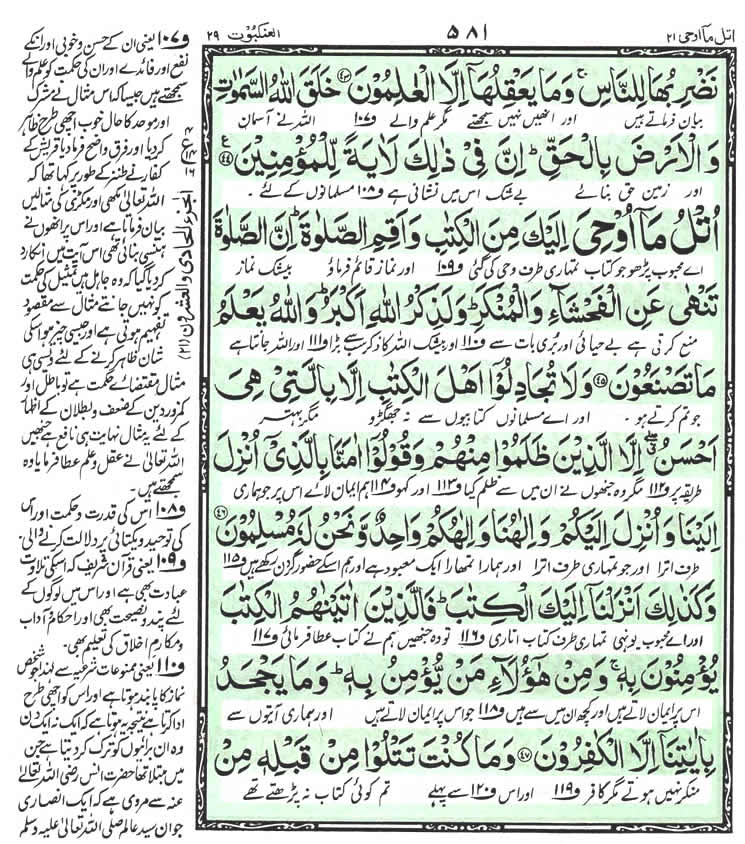 اتل ما اوحی ۲۱
۵۸۱
العنکبوت ۲۹
نَضْرِبُهَا لِلنَّاسِ ۚ وَمَا يَعْقِلُهَآ اِلَّا الْعٰلِمُوْنَ ﴿۴۳﴾ خَلَقَ اللّٰهُ السَّمٰوٰتِ
بیان فرماتے ہیں اور انھیں نہیں سمجھتے مگر علم والے ف۱۰۷ اللہ نے آسمان
وَالْاَرْضَ بِالْحَقِّ ؕ اِنَّ فِيْ ذٰلِكَ لَاٰيَةً لِّلْمُؤْمِنِيْنَ ﴿۴۴﴾
اور زمین حق بنائے بے شک اس میں نشانی ہے ف۱۰۸ مسلمانوں کے لئے ۔
اُتْلُ مَآ اُوْحِيَ اِلَيْكَ مِنَ الْكِتٰبِ وَاَقِمِ الصَّلٰوةَ ؕ اِنَّ الصَّلٰوةَ
اے محبوب پڑھو جو کتاب تمہاری طرف وحی کی گئی ف۱۰۹ اور نماز قائم فرماؤ بیشک نماز
تَنْهٰى عَنِ الْفَحْشَآءِ وَالْمُنْكَرِ ؕ وَلَذِكْرُ اللّٰهِ اَكْبَرُ ؕ وَاللّٰهُ يَعْلَمُ
منع کرتی ہے بے حیائی اور بری بات سے ف۱۱۰ اور بیشک اللہ کا ذکر سب سے بڑا ف۱۱۱ اور اللہ جانتا ہے
مَا تَصْنَعُوْنَ ﴿۴۵﴾ وَلَا تُجَادِلُوْٓا اَهْلَ الْكِتٰبِ اِلَّا بِالَّتِيْ هِيَ
جو تم کرتے ہو ۔ اور اے مسلمانوں کتابیوں سے نہ جھگڑو مگر بہتر
اَحْسَنُ ۖ اِلَّا الَّذِيْنَ ظَلَمُوْا مِنْهُمْ وَقُوْلُوْٓا اٰمَنَّا بِالَّذِيْٓ اُنْزِلَ
طریقہ پر ف۱۱۲ مگر وہ جنھوں نے ان میں سے ظلم کیا ف۱۱۳ اور کہو ف۱۱۴ ہم ایمان لائے اس پر جو ہماری
اِلَيْنَا وَاُنْزِلَ اِلَيْكُمْ وَاِلٰهُنَا وَاِلٰهُكُمْ وَاحِدٌ وَّنَحْنُ لَهٗ مُسْلِمُوْنَ ﴿۴۶﴾
طرف اترا اور جو تمہاری طرف اترا اور ہمارا تمھارا ایک معبود ہے اور ہم اسکے حضور گردن رکھے ہیں ف۱۱۵
وَكَذٰلِكَ اَنْزَلْنَآ اِلَيْكَ الْكِتٰبَ ؕ فَالَّذِيْنَ اٰتَيْنٰهُمُ الْكِتٰبَ
اور اے محبوب یونہی تمہاری طرف کتاب اتاری ف۱۱۶ تو وہ جنھیں ہم نے کتاب عطا فرمائی ف۱۱۷
يُؤْمِنُوْنَ بِهٖ ۚ وَمِنْ هٰٓؤُلَآءِ مَنْ يُّؤْمِنُ بِهٖ ؕ وَمَا يَجْحَدُ
اس پر ایمان لاتے ہیں اور کچھ ان میں سے ہیں ف۱۱۸ جو اس پر ایمان لاتے ہیں اور ہماری آیتوں سے
بِاٰيٰتِنَآ اِلَّا الْكٰفِرُوْنَ ﴿۴۷﴾ وَمَا كُنْتَ تَتْلُوْا مِنْ قَبْلِهٖ مِنْ
منکر نہیں ہوتے مگر کافر ف۱۱۹ اور اس ف۱۲۰ سے پہلے تم کوئی کتاب نہ پڑھتے تھے
ع ۴ ۱۴ ۱۶
الجزء الحادی والعشرون (۲۱)
ف۱۰۷ یعنی ان کے حسن و خوبی اور انکے
نفع اور فائدے اور ان کی حکمت کو علم والے
سمجھتے ہیں جیسا کہ اس مثال نے مشرک
اور موحد کا حال خوب اچھی طرح ظاہر
کردیا اور فرق واضح فرما دیا قریش کے
کفار نے طنز کے طور پر کہا تھا کہ
اللہ تعالیٰ مکھی اور مکڑی کی مثالیں
بیان فرماتا ہے اور اس پر انھوں نے
ہنسی بنائی تھی اس آیت میں انکا رد
کردیا گیا کہ وہ جاہل ہیں تمثیل کی حکمت
کو نہیں جانتے مثال سے مقصود
تفہیم ہوتی ہے اور جیسی چیز ہو اسکی
شان ظاہر کرنے کے لئے ویسی ہی
مثال مقتضائے حکمت ہے تو باطل اور
کمزور دین کے ضعف و بطلان کے اظہار
کے لئے یہ مثال نہایت ہی نافع ہے جنھیں
اللہ تعالیٰ نے عقل و علم عطا فرمایا وہ
سمجھتے ہیں ۔
ف۱۰۸ اس کی قدرت و حکمت اور اس
کی توحید و یکتائی پر دلالت کرنے والی ۔
ف۱۰۹ یعنی قرآن شریف کہ اسکی تلاوت
عبادت بھی ہے اور اس میں لوگوں کے
لئے پند و نصیحت بھی اور احکام و آداب
و مکارم اخلاق کی تعلیم بھی ۔
ف۱۱۰ یعنی ممنوعات شرعیہ سے لہٰذا جو شخص
نماز کا پابند ہوتا ہے اور اس کو اچھی طرح
ادا کرتا ہے نتیجہ یہ ہوتا ہے کہ ایک نہ ایک دن
وہ ان برائیوں کو ترک کردیتا ہے جن
میں مبتلا تھا حضرت انس رضی اللہ تعالیٰ
عنہ سے مروی ہے کہ ایک انصاری
جوان سید عالم صلی اللہ تعالیٰ علیہ وسلم